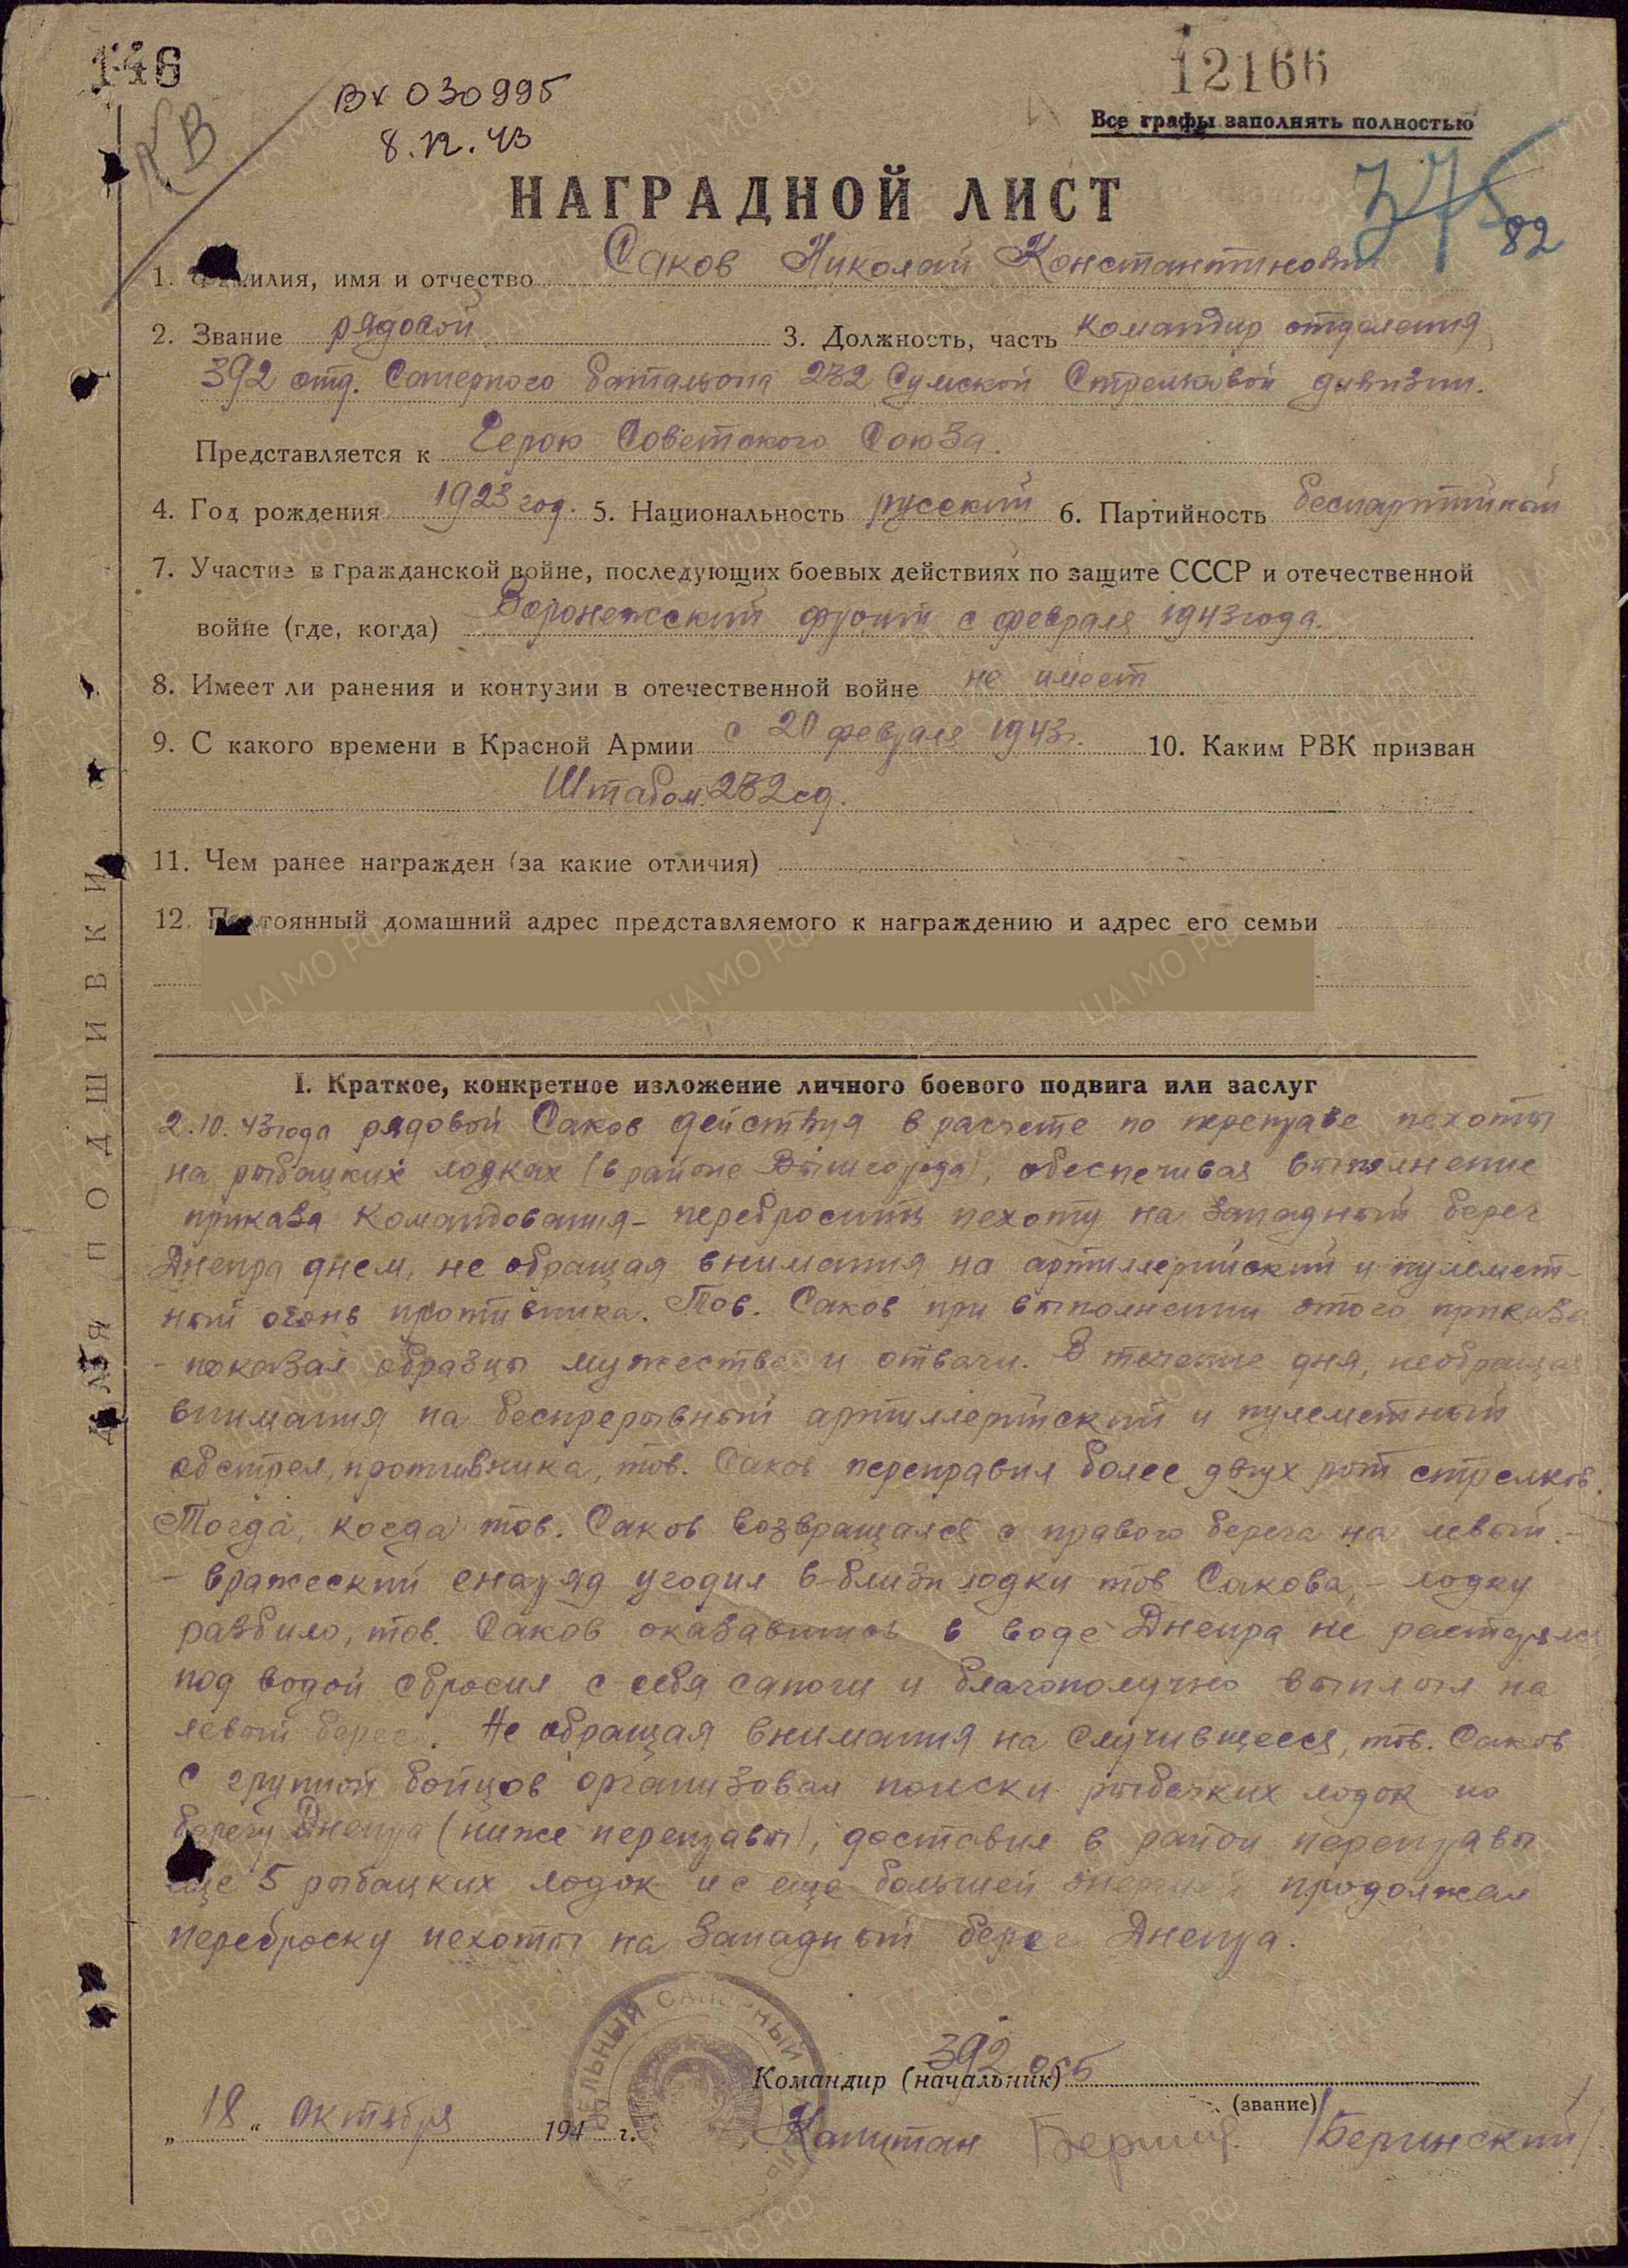 146
Вх 030995
8.12.43
12166
Все графы заполнять полностью
КВ
375
82
НАГРАДНОЙ ЛИСТ
1. Фамилия, имя и отчество Саков Николай Константинович
2. Звание рядовой 3. Должность, часть командир отделения
392 отд. Саперного батальона 232 Сумской Стрелковой дивизии.
Представляется к Герою Советского Союза.
4. Год рождения 1923 год. 5. Национальность русский 6. Партийность беспартийный
7. Участие в гражданской войне, последующих боевых действиях по защите СССР и отечественной
войне (где, когда) Воронежский фронт с февраля 1943 года.
8. Имеет ли ранения и контузии в отечественной войне не имеет
9. С какого времени в Красной Армии с 20 февраля 1943 г. 10. Каким РВК призван
Штабом 232 сд.
11. Чем ранее награжден (за какие отличия)
12. Постоянный домашний адрес представляемого к награждению и адрес его семьи
I. Краткое, конкретное изложение личного боевого подвига или заслуг
2.10.43 года рядовой Саков действуя в расчете по переправе пехоты
на рыбацких лодках (в районе Вышгорода), обеспечивая выполнение
приказа командования - перебросить пехоту на Западный берег
Днепра днем, не обращая внимания на артиллерийский и пулемет-
ный огонь противника. Тов. Саков при выполнении этого приказа
- показал образцы мужества и отваги. В течение дня, необращая
внимания на беспрерывный артиллерийский и пулеметный
обстрел, противника, тов. Саков переправил более двух рот стрелков.
Тогда, когда тов. Саков возвращался с правого берега на левый -
- вражеский снаряд угодил в-близи лодки тов Сакова, - лодку
разбило, тов. Саков оказавшись в воде Днепра не растерялся
под водой сбросил с себя сапоги и благополучно выплыл на
левый берег. Не обращая внимания на случившееся, тов. Саков
с группой бойцов организовал поиски рыбачких лодок по
берегу Днепра (ниже переправы), доставил в район переправы
еще 5 рыбацких лодок и с еще большей энергией продолжал
переброску пехоты на Западный берег Днепра.
392 осб
Командир (начальник)
(звание)
„ 18 “ Октября 194 г.
Капитан /Бергинский/
ДЛЯ ПОДШИВКИ
ОТДЕЛЬНЫЙ САПЕРНЫЙ